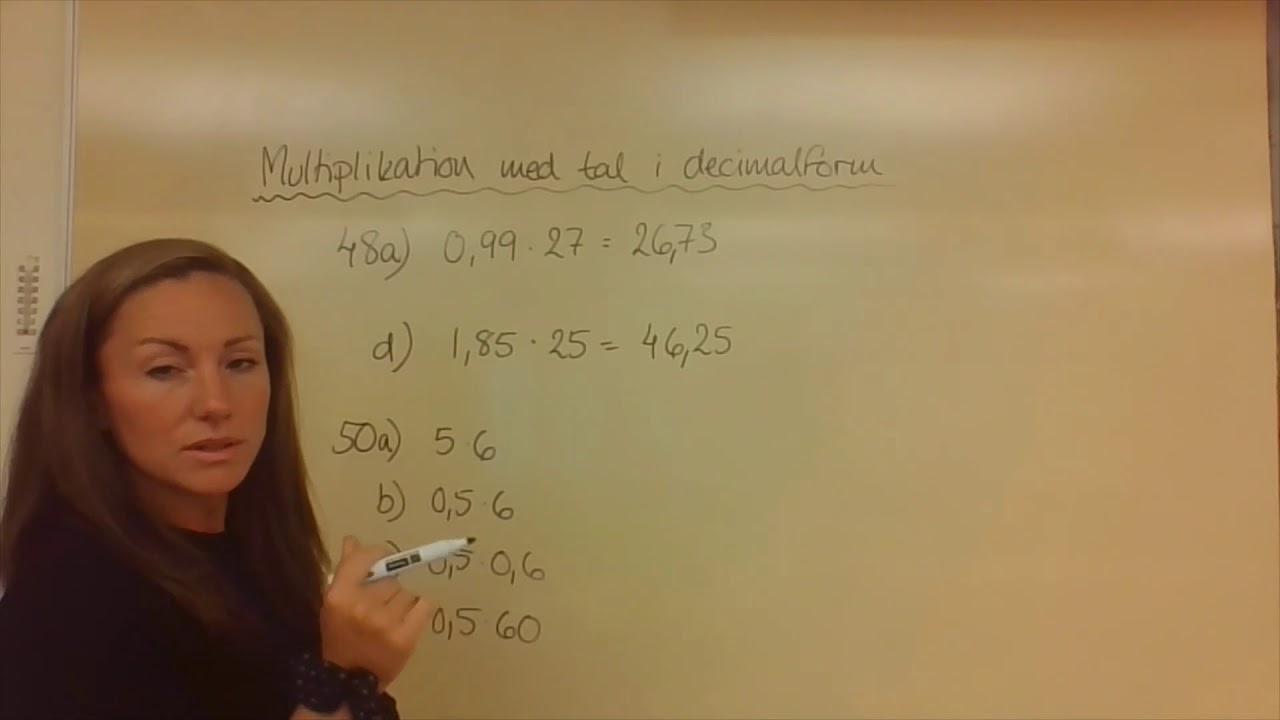 Multiplikation med tal i decimalform
48a) 0,99 · 27 = 26,73
d) 1,85 · 25 = 46,25
50a) 5 · 6
b) 0,5 · 6
) 0,5 · 0,6
0,5 · 60